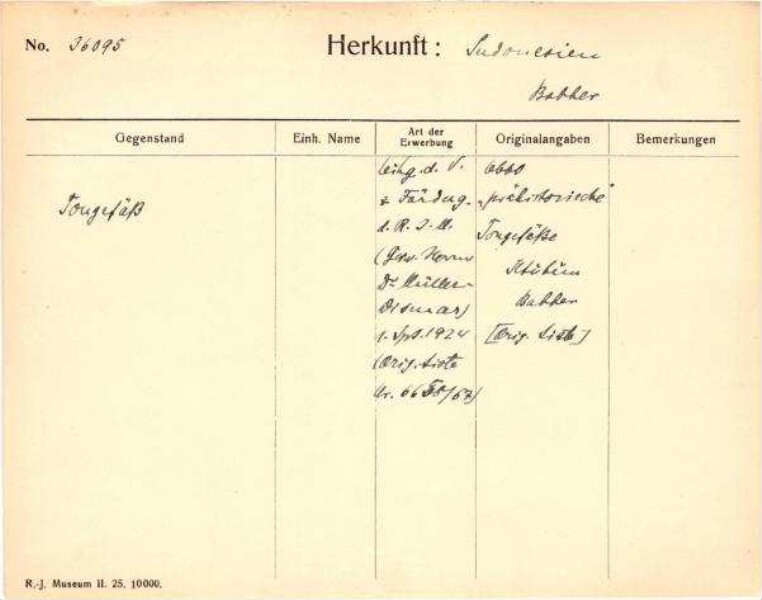 No. 36095
Herkunft: Indonesien
Babber
Gegenstand
Einh. Name
Art der Erwerbung
Originalangaben
Bemerkungen
Tongefäß
d. V.
z. Förderg.
d. R. J. M.
(Herrn
Dr. Müller-
Wismar)
1. Spt. 1924
(Orig. Liste
Nr. 66
"prähistorische"
Tongefäße
Babber
[Orig. Liste]
R.-J. Museum II. 25. 10000.